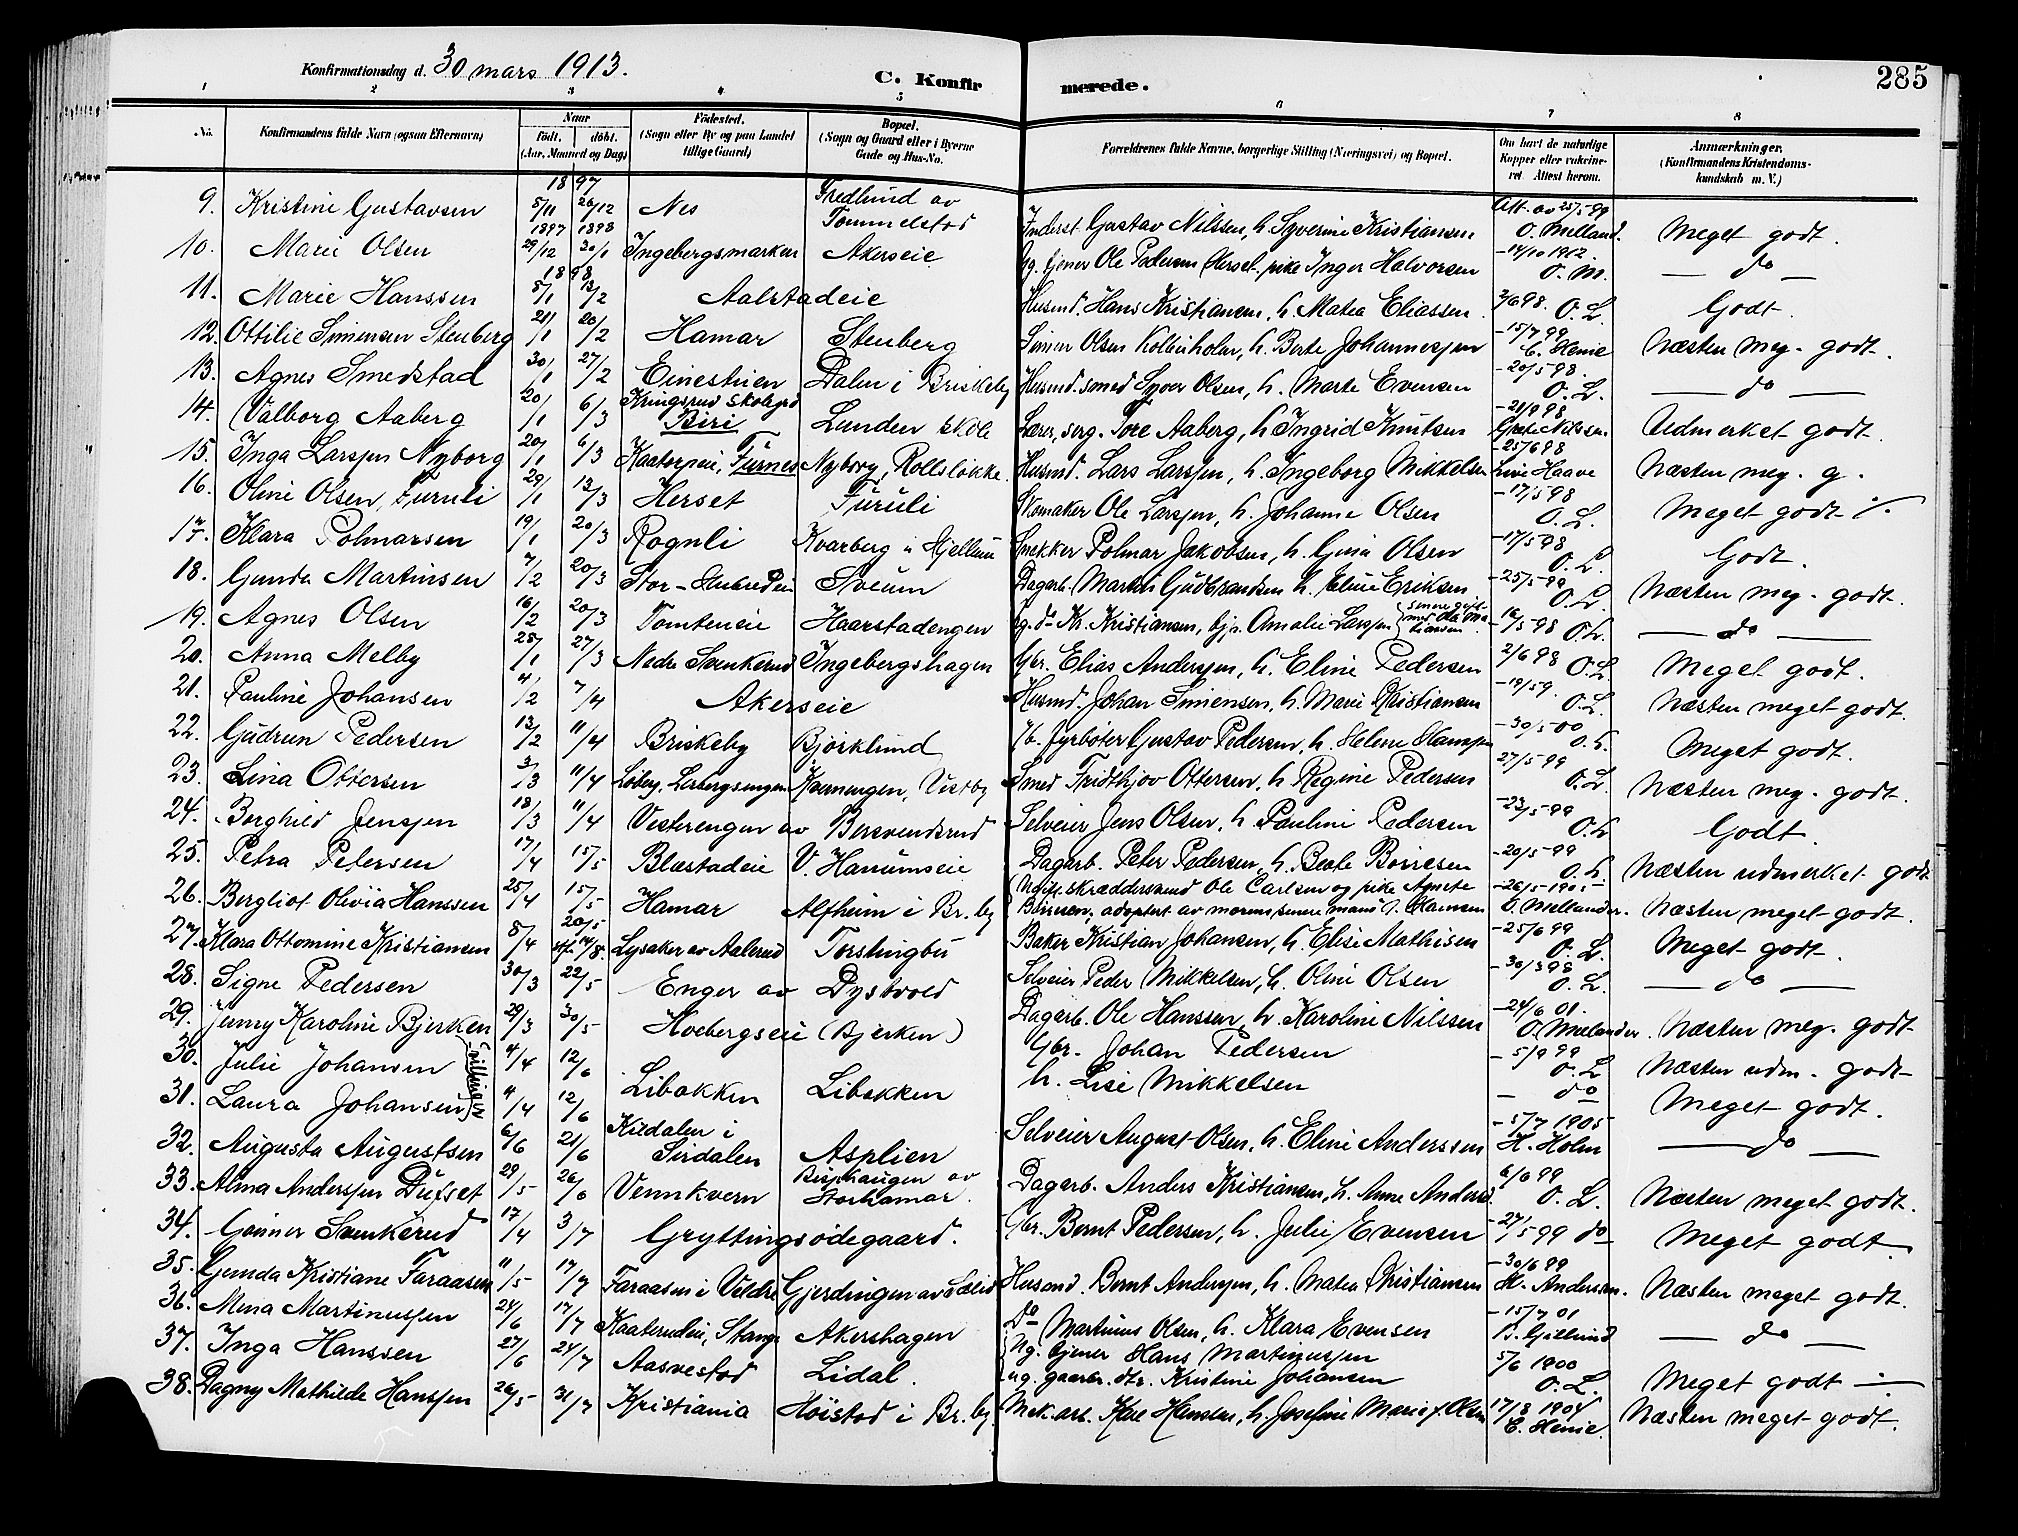 285
Konfirmationsdag d. 30 mars 1913.
C. Konfirmerede.
1 2 3 4 5 6 7 8
No. Konfirmandens fulde Navn (ogsaa Efternavn) Naar födt. döbt. (Aar, Maaned og Dag) Födested. (Sogn eller By og paa Landet tillige Gaard) Bopæl. (Sogn og Gaard eller i Byerne Gade og Hus-No. Forældrenes fulde Navne, borgerlige Stilling (Næringsvei) og Bopæl. Om havt de naturlige Kopper eller vakcineret. Attest herom. Anmærkninger. (Konfirmandens Kristendomskundskab m. V.)
9. Kristine Gustavsen 1897 5/11 26/12 Nes Fredlund av Tommelstad Inderst Gustav Nilssen, h. Syverine Kristiansen Att. av 25/5-99 O. Melland. Meget godt.
10. Marie Olsen 1897 29/12 1898 30/1 Ingebergsmarken Akerseie Ug. tjener Ole Pedersen Herset, pike Inger Halvorsen -14/10 1912. O. M. — do —
11. Marie Hanssen 1898 5/1 13/2 Aalstadeie Husmd. Hans Kristiansen, h. Matea Eliassen 3/6 98. O. L. Godt.
12. Ottilie Simensen Stenberg 21/1 20/2 Hamar Stenberg Simen Olsen Kolbuholm, h. Berte Johannesjen -15/7 99 C. Henie Næsten meg. godt.
13. Agnes Smedstad 30/1 27/2 Einestuen Dalen i Briskeby Husmd. smed Syver Olsen, h. Marte Evensen -20/5 98. O. L. — do —
14. Valborg Aaberg 20/1 6/3 Kringsrud skolegrd Biri Lunden skole Lærer, serg. Tore Aaberg, h. Ingrid Knutsen -21/9 98 Udmerket godt.
15. Inga Larsjen Nyborg 20/1 6/3 Kaatorpeie, Furnes Nyborg, Rollsløkke Husmd. Lars Larsjen, h. Ingeborg Mikkelsen -25/6 98 Line Haave Næsten meg. g.
16. Oline Olsen, Furuli 29/1 13/3 Herset Furuli Skomaker Ole Larsjen, h. Johanne Olsen -17/5 98 O. L. Meget godt -/-
17. Klara Polmarsen 19/1 20/3 Rognli Kvarberg u Hjellum Snekker Polmar Jakobsen, h. Gina Olsen -17/5 98 O. L. Godt.
18. Gunda Martinsen 7/2 20/3 Sveum Dagarb. Martin Gudbrandsen h. Eline Eriksen -25/5-99 O. L. Næsten meg. godt.
19. Agnes Olsen 16/2 20/3 Tomteneie Haarstadengen Ug. do Kr. Kristiansen, tj.p. Amalie Larsjen (senere gift med Ole Mathiassen -16/5-98 O. L. — do —
20. Anna Melby 28/1 27/3 Nedre Svenkerud Ingebergshagen Gbr. Elias Andersjen, h. Eline Pedersen 2/6 98 O. L. Meget godt.
21. Pauline Johansen 4/2 7/4 Akerseie Husmd. Johan Simensen, h. Marie Kristiansen -19/5 9. O. L. Næsten meget godt.
22. Gudrun Pedersen 13/2 11/4 Briskeby Bjørklund Fyrbøter Gustav Pedersen, h. Helene Hansjen -30/5-00 O. L. Meget godt.
23. Lina Ottersen 3/3 11/4 Løbey, Lerbergsengen Kvernengen, Vestby Smed Fridthjov Ottersen, h. Regine Pedersen 27/5-99 O. L. Næsten meg. godt.
24. Borghild Jensjen 18/3 11/4 Vesterengen av Bersvendsrud Selveier Jens Olsen, h. Pauline Pedersen -23/5-99 O. L. Godt.
25. Petra Petersen 17/4 15/5 Blæstadeie V. Hanumseie Dagarb. Peter Pedersen, h. Beate Børresen -20/5-99 O. L. Næsten udmerket godt
26. Bergliot Olivia Hanssen 25/4 15/5 Hamar Alfheim i Br. by Ugift skræddersvend Ole Carlsen og pike Agnete Børresen, adoptert av morens senere mand J. Hansen -26/5-1905 O. Mellander. Næsten meget godt.
27. Klara Ottomine Kristiansen 8/4 20/5 14/8. Lysaker av Aalerud Torshingbu Baker Kristian Johansen, h. Elise Mathisen -25/6 99 O. L. Meget godt.
28. Signe Pedersen 30/3 22/5 Enger av Dystvold Selveier Peder Mikkelsen, h. Oline Olsen -30/3 98 O. L. — do —
29. Jenny Karoline Bjerken 29/3 30/5 Hvebergseie (Bjerken) Dagarb. Ole Hanssen, h. Karoline Nilssen -24/6 01. O. Mellander. Næsten meg. godt
30. Julie Johansen 4/4 12/6 Gbr. Johan Pedersen -5/9 99 O. L. Næsten udm. godt
(tvillinger)
31. Laura Johansen 4/4 12/6 Libakken Libakken h. Lise Mikkelsen — do Meget godt.
32. Augusta Augustsen 6/6 21/6 Kildalen i Sirdalen Asplien Selveier August Olsen, h. Eline Anderssen -5/7 1905 H. Holm — do —
33. Alma Andersjen Dufset 29/5 26/6 Vennkvern Bisphaugen av Storhamar. Dagarb. Anders Kristiansen, h. Anne Andersd. 6/6 99 O. L. Næsten meget godt.
34. Gunner Svenkerud 17/4 3/7 Gryttingsødegaard. Gbr. Bernt Pedersen, h. Julie Evensen -27/5 99 do Meget godt
35. Gunda Kristiane Faraasen 11/5 17/7 Faraasen i Veldre Gjerdringen av Sælid Husmd. Bernt Andersjen, h. Matea Kristiansen -30/6 99 M. Andersen. Næsten meget godt.
36. Mina Martinusjen 24/6 17/7 Kaaterudeie, Stange Akershagen do Martinus Olsen, h. Klara Evensen -15/7 01 B. Gillund — do —
37. Inga Hanssen 27/6 24/7 Aasvestad Lidal. Ug. tjener Hans Martinusjen ug. gaarbr. dtr. Kristine Johansen 5/6 1900 O. L. Meget godt -:-
38. Dagny Mathilde Hansjen 26/5 31/7 Kristiania Høistad i Br. by Mek. arb. Kare Hansen, h. Josefine Marie f. Olsen 17/8 1904 C. Henie. Næsten meget godt.